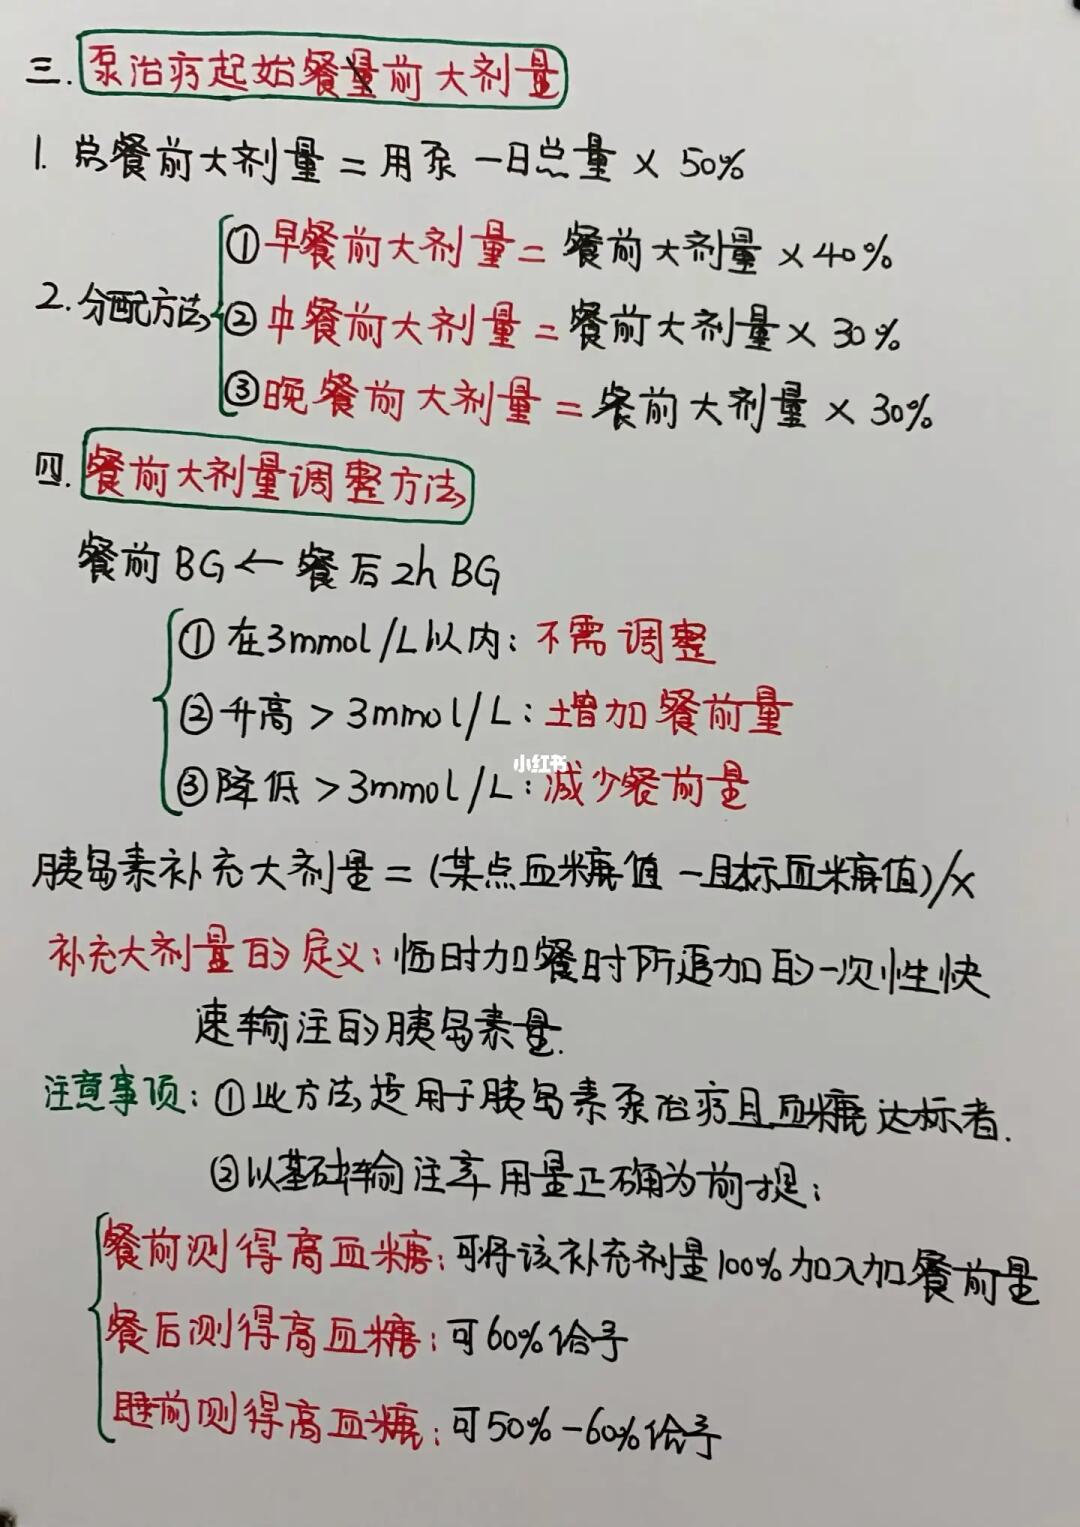 三. 泵治疗起始餐前大剂量
1. 总餐前大剂量 = 用泵一日总量 × 50%
2. 分配方法
① 早餐前大剂量 = 餐前大剂量 × 40%
② 中餐前大剂量 = 餐前大剂量 × 30%
③ 晚餐前大剂量 = 餐前大剂量 × 30%
四. 餐前大剂量调整方法
餐前BG ← 餐后2h BG
① 在3mmol/L以内: 不需调整
② 升高 > 3mmol/L: 增加餐前量
③ 降低 > 3mmol/L: 减少餐前量
小红书
胰岛素补充大剂量 = (某点血糖值 - 目标血糖值)/X
补充大剂量的定义: 临时加餐时所追加的一次性快
速输注的胰岛素量.
注意事项: ① 此方法适用于胰岛素泵治疗且血糖达标者.
② 以基础输注率用量正确为前提:
餐前测得高血糖: 可将该补充剂量100%加入加餐前量
餐后测得高血糖: 可60%给予
睡前测得高血糖: 可50%-60%给予